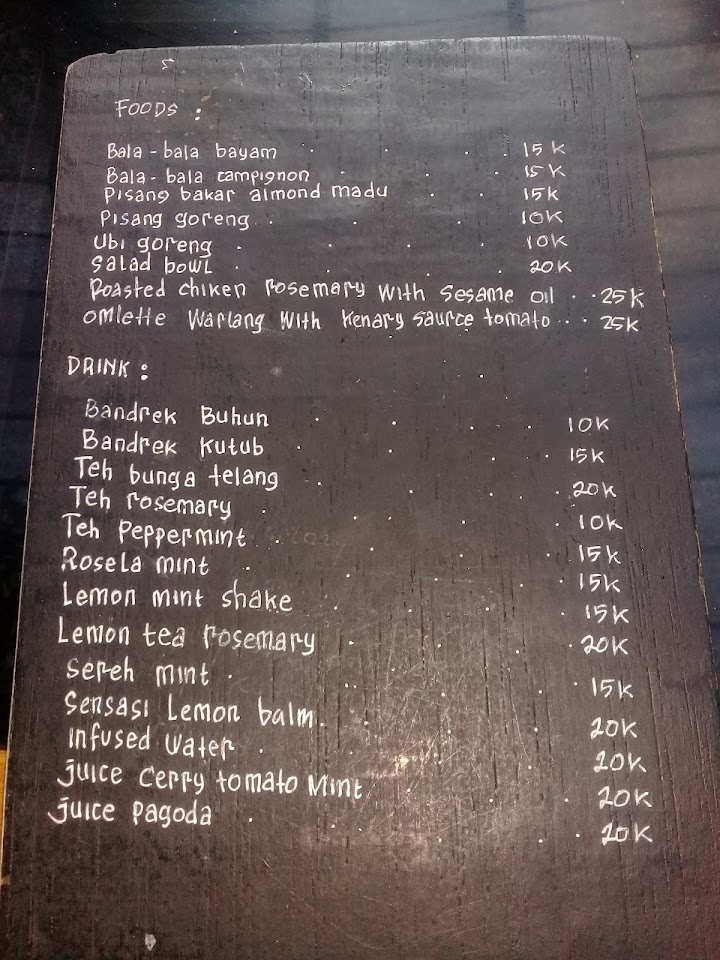 FOODS :
Bala - bala bayam . . . . 15 K
Bala - bala campignon . . . . 15 K
Pisang bakar almond madu . . . 15 K
Pisang goreng . . . . 10K
Ubi goreng . . . . 10K
Salad bowl . . . . 20K
Roasted chiken rosemary with sesame oil . . 25K
Omlette Warlang with kenary saurce tomato . . . 25K
DRINK :
Bandrek Buhun . . . . 10K
Bandrek Kutub . . . . 15K
Teh bunga telang . . . . 20K
Teh rosemary . . . . 10K
Teh Peppermint . . . . 15K
Rosela mint . . . . 15K
Lemon mint shake . . . . 15K
Lemon tea rosemary . . . . 20K
Sereh mint . . . . 15K
Sensasi Lemon balm . . . . 20K
Infused Water . . . . 20K
Juice Cerry tomato Mint . . . . 20K
Juice Pagoda . . . . 20K